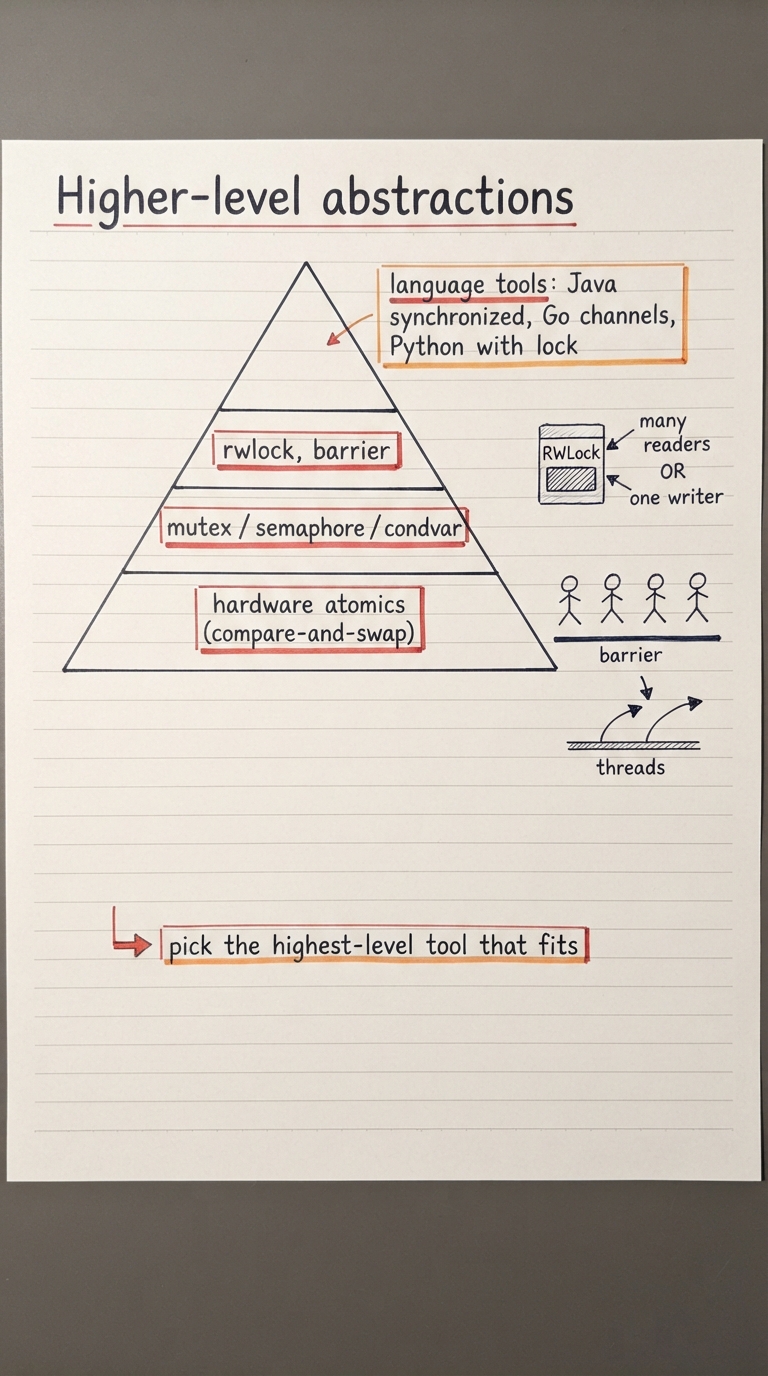 Higher-level abstractions
language tools: Java
synchronized, Go channels,
Python with lock
rwlock, barrier
mutex / semaphore / condvar
hardware atomics
(compare-and-swap)
RWLock
many
readers
OR
one writer
barrier
threads
pick the highest-level tool that fits